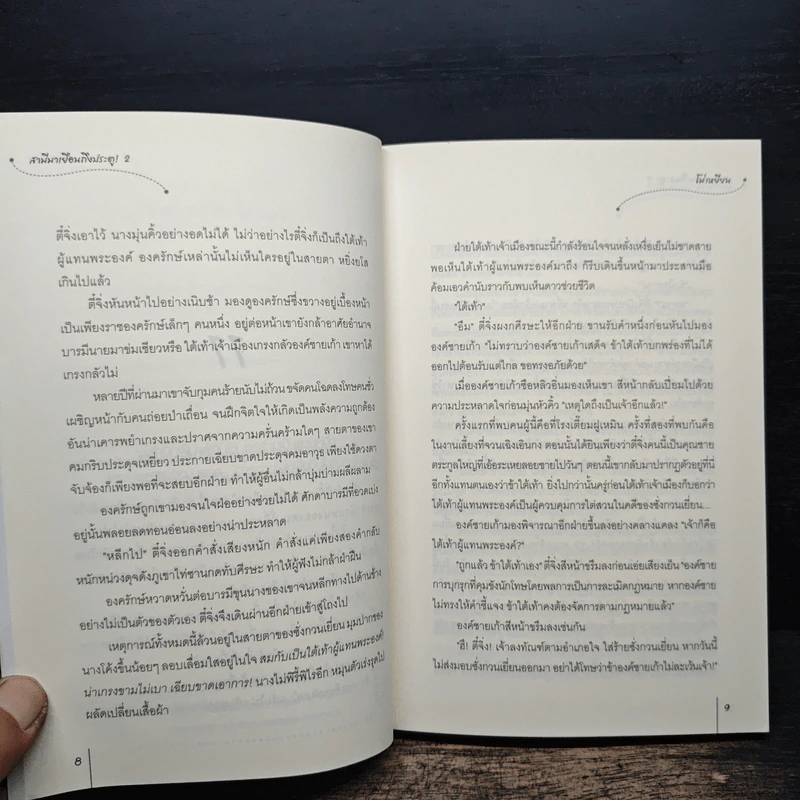 สามีมาเยือนถึงประตู! 2
ตี๋จิ่งเอาไว้ นางมุ่นคิ้วอย่างอดไม่ได้ ไม่ว่าอย่างไรตี๋จิ่งก็เป็นถึงใต้เท้า
ผู้แทนพระองค์ องครักษ์เหล่านั้นไม่เห็นใครอยู่ในสายตา หยิ่งยโส
เกินไปแล้ว
ตี๋จิ่งหันหน้าไปอย่างเนิบช้า มองดูองครักษ์ซึ่งขวางอยู่เบื้องหน้า
เป็นเพียงราชองครักษ์เล็กๆ คนหนึ่ง อยู่ต่อหน้าเขายังกล้าอาศัยอำนาจ
บารมีนายมาข่มเชียวหรือ ใต้เท้าเจ้าเมืองเกรงกลัวองค์ชายเก้า เขาหาได้
เกรงกลัวไม่
หลายปีที่ผ่านมาเขาจับกุมคนร้ายนับไม่ถ้วน ขจัดคนโฉดลงโทษคนชั่ว
เผชิญหน้ากับคนถ่อยป่าเถื่อน จนฝึกจิตใจให้เกิดเป็นพลังความถูกต้อง
อันน่าเคารพยำเกรงและปราศจากความครั่นคร้ามใดๆ สายตาของเขา
คมกริบประดุจเหยี่ยว ประกายเฉียบขาดประดุจคมอาวุธ เพียงใช้ดวงตา
จับจ้องก็เพียงพอที่จะสยบอีกฝ่าย ทำให้ผู้อื่นไม่กล้าบุ่มบ่ามผลีผลาม
องครักษ์ถูกเขามองจนใจฝ่ออย่างช่วยไม่ได้ ศักดาบารมีที่อวดเบ่ง
อยู่นั้นพลอยลดทอนอ่อนลงอย่างน่าประหลาด
"หลีกไป" ตี๋จิ่งออกคำสั่งเสียงหนัก คำสั่งแค่เพียงสองคำกลับ
หนักหน่วงดุจดังภูเขาไท่ซานกดทับศีรษะ ทำให้ผู้ฟังไม่กล้าฝ่าฝืน
องครักษ์หวาดหวั่นต่อบารมีขุนนางของเขาจนหลีกทางไปด้านข้าง
อย่างไม่เป็นตัวของตัวเอง ตี๋จิ่งจึงเดินผ่านอีกฝ่ายเข้าสู่โถงไป
เหตุการณ์ทั้งหมดนี้ล้วนอยู่ในสายตาของซั่งกวนเยี่ยน มุมปากของ
นางโค้งขึ้นน้อยๆ ลอบเลื่อมใสอยู่ในใจ สมกับเป็นใต้เท้าผู้แทนพระองค์!
น่าเกรงขามไม่เบา เฉียบขาดเอาการ! นางไม่พิรี้พิไรอีก หมุนตัวเร่งรุดไป
ผลัดเปลี่ยนเสื้อผ้า
8
โม่เหยียน
ฝ่ายใต้เท้าเจ้าเมืองขณะนี้กำลังร้อนใจจนหลั่งเหงื่อเย็นไม่ขาดสาย
พอเห็นใต้เท้าผู้แทนพระองค์มาถึง ก็รีบเดินขึ้นหน้ามาประสานมือ
ค้อมเอวคำนับราวกับพบเห็นดาวช่วยชีวิต
"ใต้เท้า"
"อืม" ตี๋จิ่งผงกศีรษะให้อีกฝ่าย ขานรับคำหนึ่งก่อนหันไปมอง
องค์ชายเก้า "ไม่ทราบว่าองค์ชายเก้าเสด็จ ข้าใต้เท้าบกพร่องที่ไม่ได้
ออกไปต้อนรับแต่ไกล ขอทรงอภัยด้วย"
เมื่อองค์ชายเก้าซือหลิวอิ่นมองเห็นเขา สีหน้ากลับเปี่ยมไปด้วย
ความประหลาดใจก่อนมุ่นหัวคิ้ว "เหตุใดถึงเป็นเจ้าอีกแล้ว!"
ครั้งแรกที่พบคนผู้นี้คือที่โรงเตี๊ยมฝูเหมิน ครั้งที่สองที่พบกันคือ
ในงานเลี้ยงที่จวนเฉิงเอินกง ตอนนั้นได้ยินเพียงว่าตี๋จิ่งคนนี้เป็นคุณชาย
ตระกูลใหญ่ที่เอ้อระเหยลอยชายไปวันๆ ตอนนี้เขากลับมาปรากฏตัวอยู่ที่นี่
อีกทั้งแทนตนเองว่าข้าใต้เท้า ยิ่งไปกว่านั้นครู่ก่อนใต้เท้าเจ้าเมืองก็บอกว่า
ใต้เท้าผู้แทนพระองค์เป็นผู้ควบคุมการไต่สวนในคดีของซั่งกวนเยี่ยน...
องค์ชายเก้ามองพิจารณาอีกฝ่ายขึ้นลงอย่างคลางแคลง "เจ้าก็คือ
ใต้เท้าผู้แทนพระองค์?"
"ถูกแล้ว ข้าใต้เท้าเอง" ตี๋จิ่งสีหน้าขรึมลงก่อนเอ่ยเสียงเย็น "องค์ชาย
การบุกรุกที่คุมขังนักโทษโดยพลการเป็นการละเมิดกฎหมาย หากองค์ชาย
ไม่ทรงให้คำชี้แจง ข้าใต้เท้าคงต้องจัดการตามกฎหมายแล้ว"
องค์ชายเก้าสีหน้าขรึมลงเช่นกัน
"ฮึ! ตี๋จิ่ง! เจ้าลงทัณฑ์ตามอำเภอใจ ใส่ร้ายซั่งกวนเยี่ยน หากวันนี้
ไม่ส่งมอบซั่งกวนเยี่ยนออกมา อย่าได้โทษว่าข้าองค์ชายเก้าไม่ละเว้นเจ้า!"
9